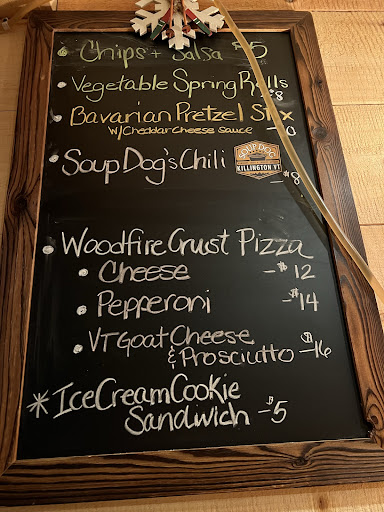 • Chips + Salsa $5
• Vegetable Spring Rolls
8
Bavarian Pretzel Stix
W/ Cheddar Cheese Sauce
• Soup Dog's Chili
SOUP DOG
KILLINGTON VT
-$8
• Woodfire Crust Pizza
• Cheese -$12
• Pepperoni -$14
• VT Goat Cheese
& Prosciutto -$16
* Ice Cream Cookie
Sandwich -$5